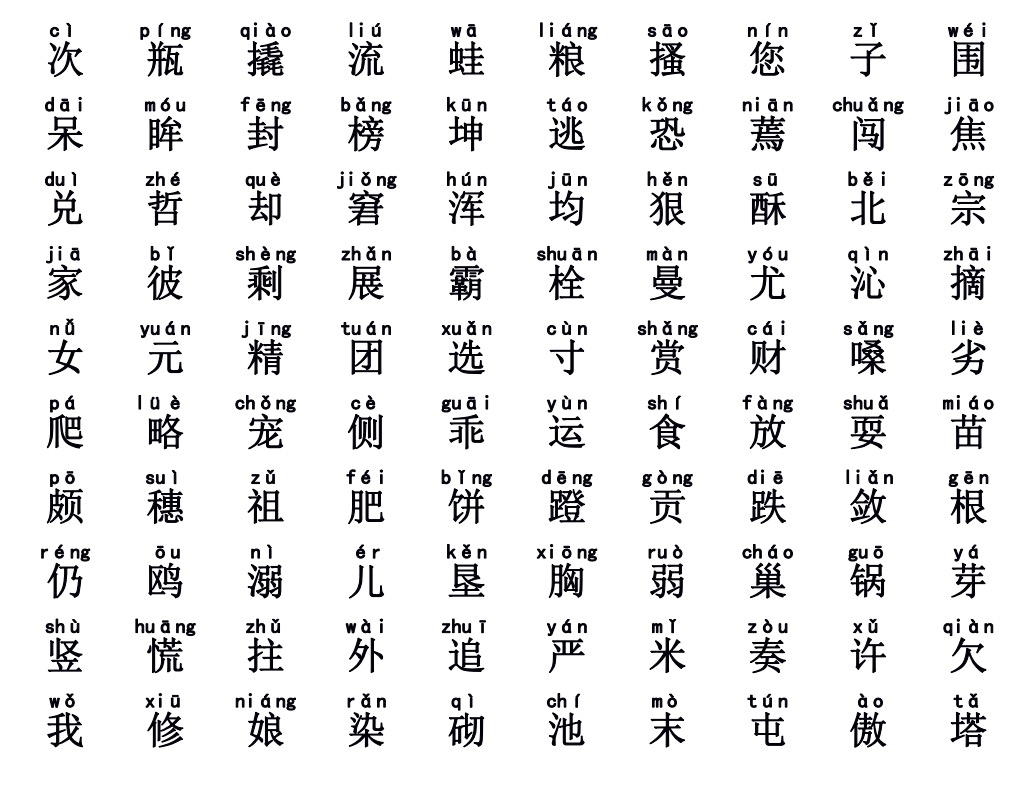 cì píng qiào liú wā liáng sāo nín zǐ wéi
次 瓶 撬 流 蛙 粮 搔 您 子 围
dāi móu fēng bǎng kūn táo kǒng niān chuǎng jiāo
呆 眸 封 榜 坤 逃 恐 蔫 闯 焦
duì zhé què jiǒng hún jūn hěn sū běi zōng
兑 哲 却 窘 浑 均 狠 酥 北 宗
jiā bǐ shèng zhǎn bà shuān màn yóu qìn zhāi
家 彼 剩 展 霸 栓 曼 尤 沁 摘
nǚ yuán jīng tuán xuǎn cùn shǎng cái sǎng liè
女 元 精 团 选 寸 赏 财 嗓 劣
pá lüè chǒng cè guāi yùn shí fàng shuǎ miáo
爬 略 宠 侧 乖 运 食 放 耍 苗
pō suì zǔ féi bǐng dēng gòng diē liǎn gēn
颇 穗 祖 肥 饼 蹬 贡 跌 敛 根
réng ōu nì ér kěn xiōng ruò cháo guō yá
仍 鸥 溺 儿 垦 胸 弱 巢 锅 芽
shù huāng zhǔ wài zhuī yán mǐ zòu xǔ qiàn
竖 慌 拄 外 追 严 米 奏 许 欠
wǒ xiū niáng rǎn qì chí mò tún ào tǎ
我 修 娘 染 砌 池 末 屯 傲 塔